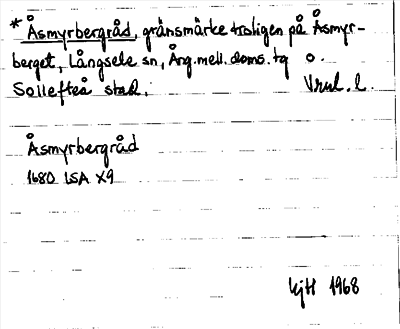 * Åsmyrbergråd, gränsmärke troligen på Åsmyr-
berget, Långsele sn, Ång. mell. doms. tg o.
Sollefteå stad. Vnl. l.
Åsmyrbergråd
1680 LSA X9
1968